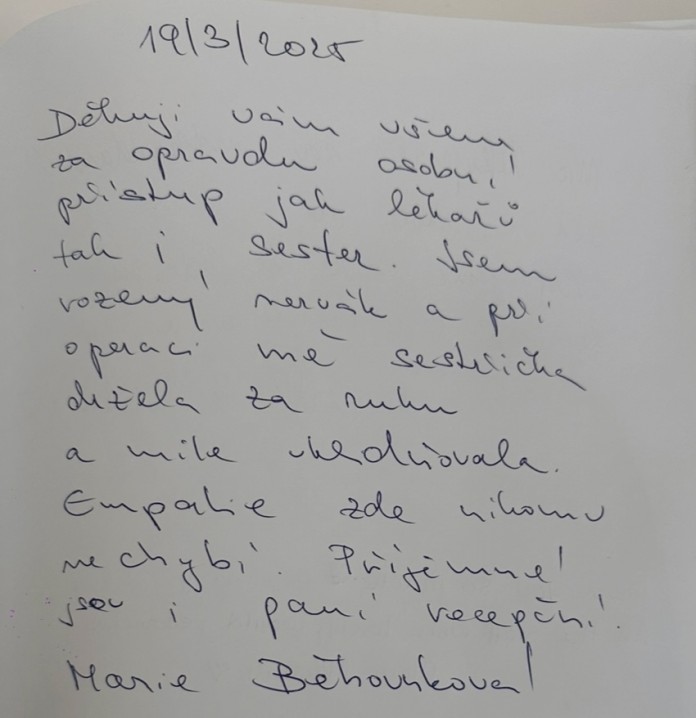 19/3/2025
Děkuji vám všem
za opravdu osobní
přístup jak lékařů
tak i sester. Jsem
rozený nervák a při
operaci mě sestřička
držela za ruku
a mile uklidňovala.
Empatie zde nikomu
nechybí. Příjemné
jsou i paní recepční.
Marie